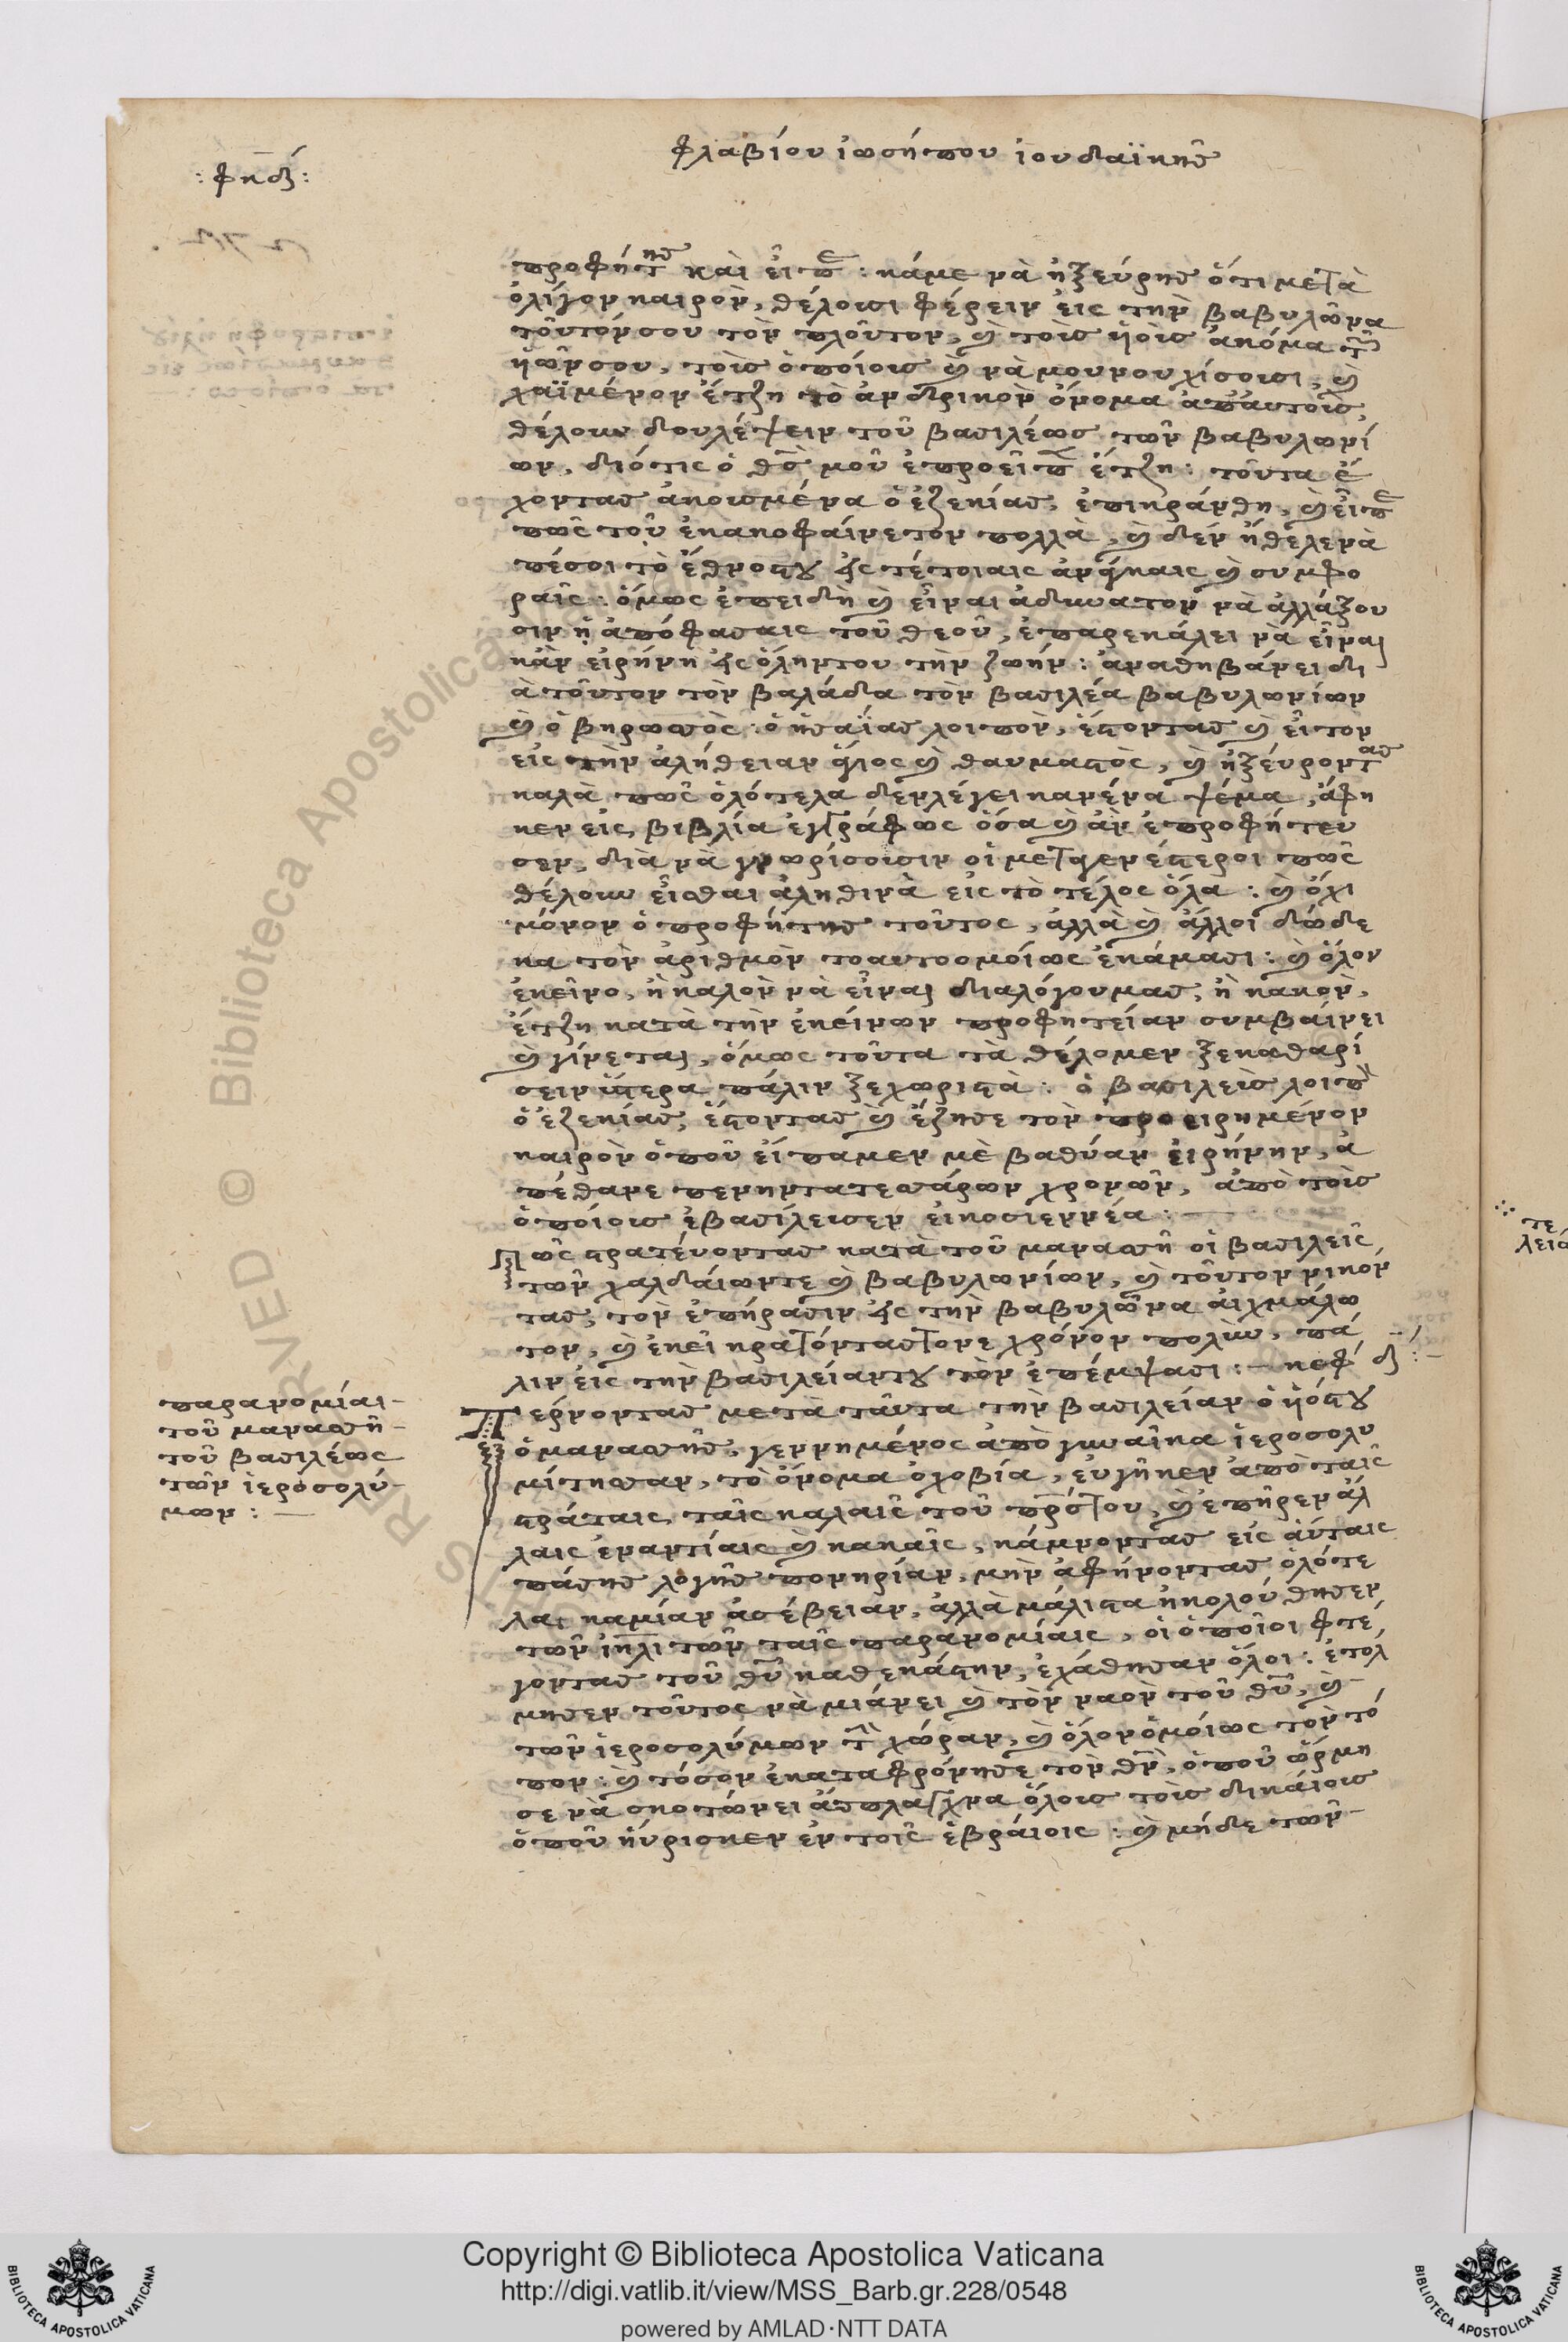 φλαβίου ἰωσήπου ἰουδαϊκῆς
: φηδ :
προφήτης καὶ εἶπε : κάμε νὰ ἠξεύρης ὅτι μετὰ
ὀλίγον καιρὸν, θέλουσι φέρειν εἰς τὴν βαβυλῶνα
τοῦτόνσου τὸν πλοῦτον, καὶ τοὺς ὑοὺς ἀκόμα τῶν
ὑῶνσου, τοὺς ὁποίους καὶ νὰ μουνουχίσουσι, καὶ
χαϊμένον ἔτζη τὸ ἀνδρικὸν ὄνομα ἀπ' αυτοὺς,
θέλουν δουλέψειν τοῦ βασιλέως τῶν βαβυλωνί
ων, διότις ὁ θς μοῦ ἐπροεῖπεν ἔτζη : τοῦτα ἐ
χοντας ἀκουσμένα ὁ ἐζεκίας, ἐπικράνθη, καὶ εἶπε
πῶς τοῦ ἐκακοφαίνετον πολλὰ, καὶ δὲν ἤθελε νὰ
πέσοι τὸ ἔθνοςτου εἰς τέτοιαις ἀνάγκαις καὶ συμφο
ραῖς : ὅμως ἐπειδὴ καὶ εἶναι ἀδύνατον νὰ ἀλλάξου
σιν ἡ ἀπόφασαις τοῦ θεοῦ, ἐπαρεκάλει νὰ εἶναι
κἂν εἰρήνη εἰς ὅληντου τὴν ζωήν : ἀναθηβάνει δι
ὰ τοῦτον τὸν βαλάδα τὸν βασιλέα βαβυλωνίων
καὶ ὁ βηρωσσὸς : ὁ ἡσαΐας λοιπὸν, ἔστοντας καὶ εἶτον
εἰς τὴν ἀλήθειαν ἅγιος καὶ θαυμαστὸς, καὶ ἠξεύροντας
καλὰ πῶς ὁλότελα δὲν λέγει κανένα ψέμα, ἄφη
κεν εἰς βιβλία ἐγγράφως ὅσα καὶ ἂν ἐπροφήτευ
σεν, διὰ νὰ γνωρίσουσιν οἱ μεταγενέστεροι πῶς
θέλουν εἶσθαι ἀληθινὰ εἰς τὸ τέλος ὅλα : καὶ ὄχι
μόνον ὁ προφήτης τοῦτος, ἀλλὰ καὶ ἄλλοι δώδε
κα τὸν ἀριθμὸν τοαυτοομοίως ἐκάμασι : καὶ ὅλον
ἐκεῖνο, ἢ καλὸν νὰ εἶναι διαλόγουμας, ἢ κακὸν,
ἔτζη κατὰ τὴν ἐκείνων προφητείαν συμβαίνει
καὶ γίνεται, ὅμως τοῦτα τὰ θέλομεν ξεκαθαρί
σειν ὕστερα πάλιν ξεχωριστὰ : ὁ βασιλεὺς λοιπὸν
ὁ ἐζεκίας, ἔστοντας καὶ ἔζησε τὸν προειρημένον
καιρὸν ὁποῦ εἴπαμεν μὲ βαθύαν εἰρήνην, ἀ
πέθανε πενηντατεσσάρων χρονῶν, ἀπὸ τοὺς
ὁποίους ἐβασίλευσεν εἰκοσιεννέα : —
Πῶς στρατεύοντας κατὰ τοῦ μανασσῆ οἱ βασιλεῖς
τῶν χαλδαίωντε καὶ βαβυλωνίων, καὶ τοῦτον νικόν
τας, τὸν ἐπήρασιν εἰς τὴν βαβυλῶνα αἰχμάλω
τον, καὶ ἐκεῖ κρατόντας τονε χρόνον πολὺν, πά
λιν εἰς τὴν βασιλείαντου τὸν ἐπέμψασι : — κεφ δ : —
Πέρνοντας μετὰ ταῦτα τὴν βασιλείαν ὁ ὑόςτου
ὁ μανασσῆς, γεννημένος ἀπὸ γυναῖκα ἱεροσολυ
μίτησσαν, τὸ ὄνομα ὀχοβία, εὐγῆκεν ἀπὸ ταῖς
στράταις ταῖς καλαῖς τοῦ πρστου, καὶ ἐπῆρεν ἄλ
λαις ἐναντίαις καὶ κακαῖς, κάμνοντας εἰς αὐταις
πάσης λογῆς πονηρίαν, μὴν ἀφήνοντας ὁλότε
λα καμίαν ἀσέβειαν, ἀλλὰ μάλιστα ἠκολούθησεν
τῶν ιηλιτῶν ταῖς παρανομίαις, οἱ ὁποῖοι φτέ
γοντας τοῦ θυ καθεκάστην, ἐχάθησαν ὅλοι : ἐτόλ
μησεν τοῦτος νὰ μιάνει καὶ τὸν ναὸν τοῦ θυ, καὶ
τῶν ἱεροσολύμων τὴν χώραν, καὶ ὅλον ὁμοίως τὸν τό
πον : καὶ τόσον ἐκαταφρόνησε τὸν θν, ὁποῦ ὥρμη
σε νὰ σκοτώνει ἄσπλαγχνα ὅλους τοὺς δικαίους
ὁποῦ ηὕρισκεν ἐν τοῖς ἑβραίοις : καὶ μήδε τῶν
παρανομίαι
τοῦ μανασσῆ
τοῦ βασιλέως
τῶν ἱεροσολύ
μων : —
τε
Copyright © Biblioteca Apostolica Vaticana
http://digi.vatlib.it/view/MSS_Barb.gr.228/0548
powered by AMLAD·NTT DATA
BIBLIOTECA APOSTOLICA VATICANA
BIBLIOTECA APOSTOLICA VATICANA